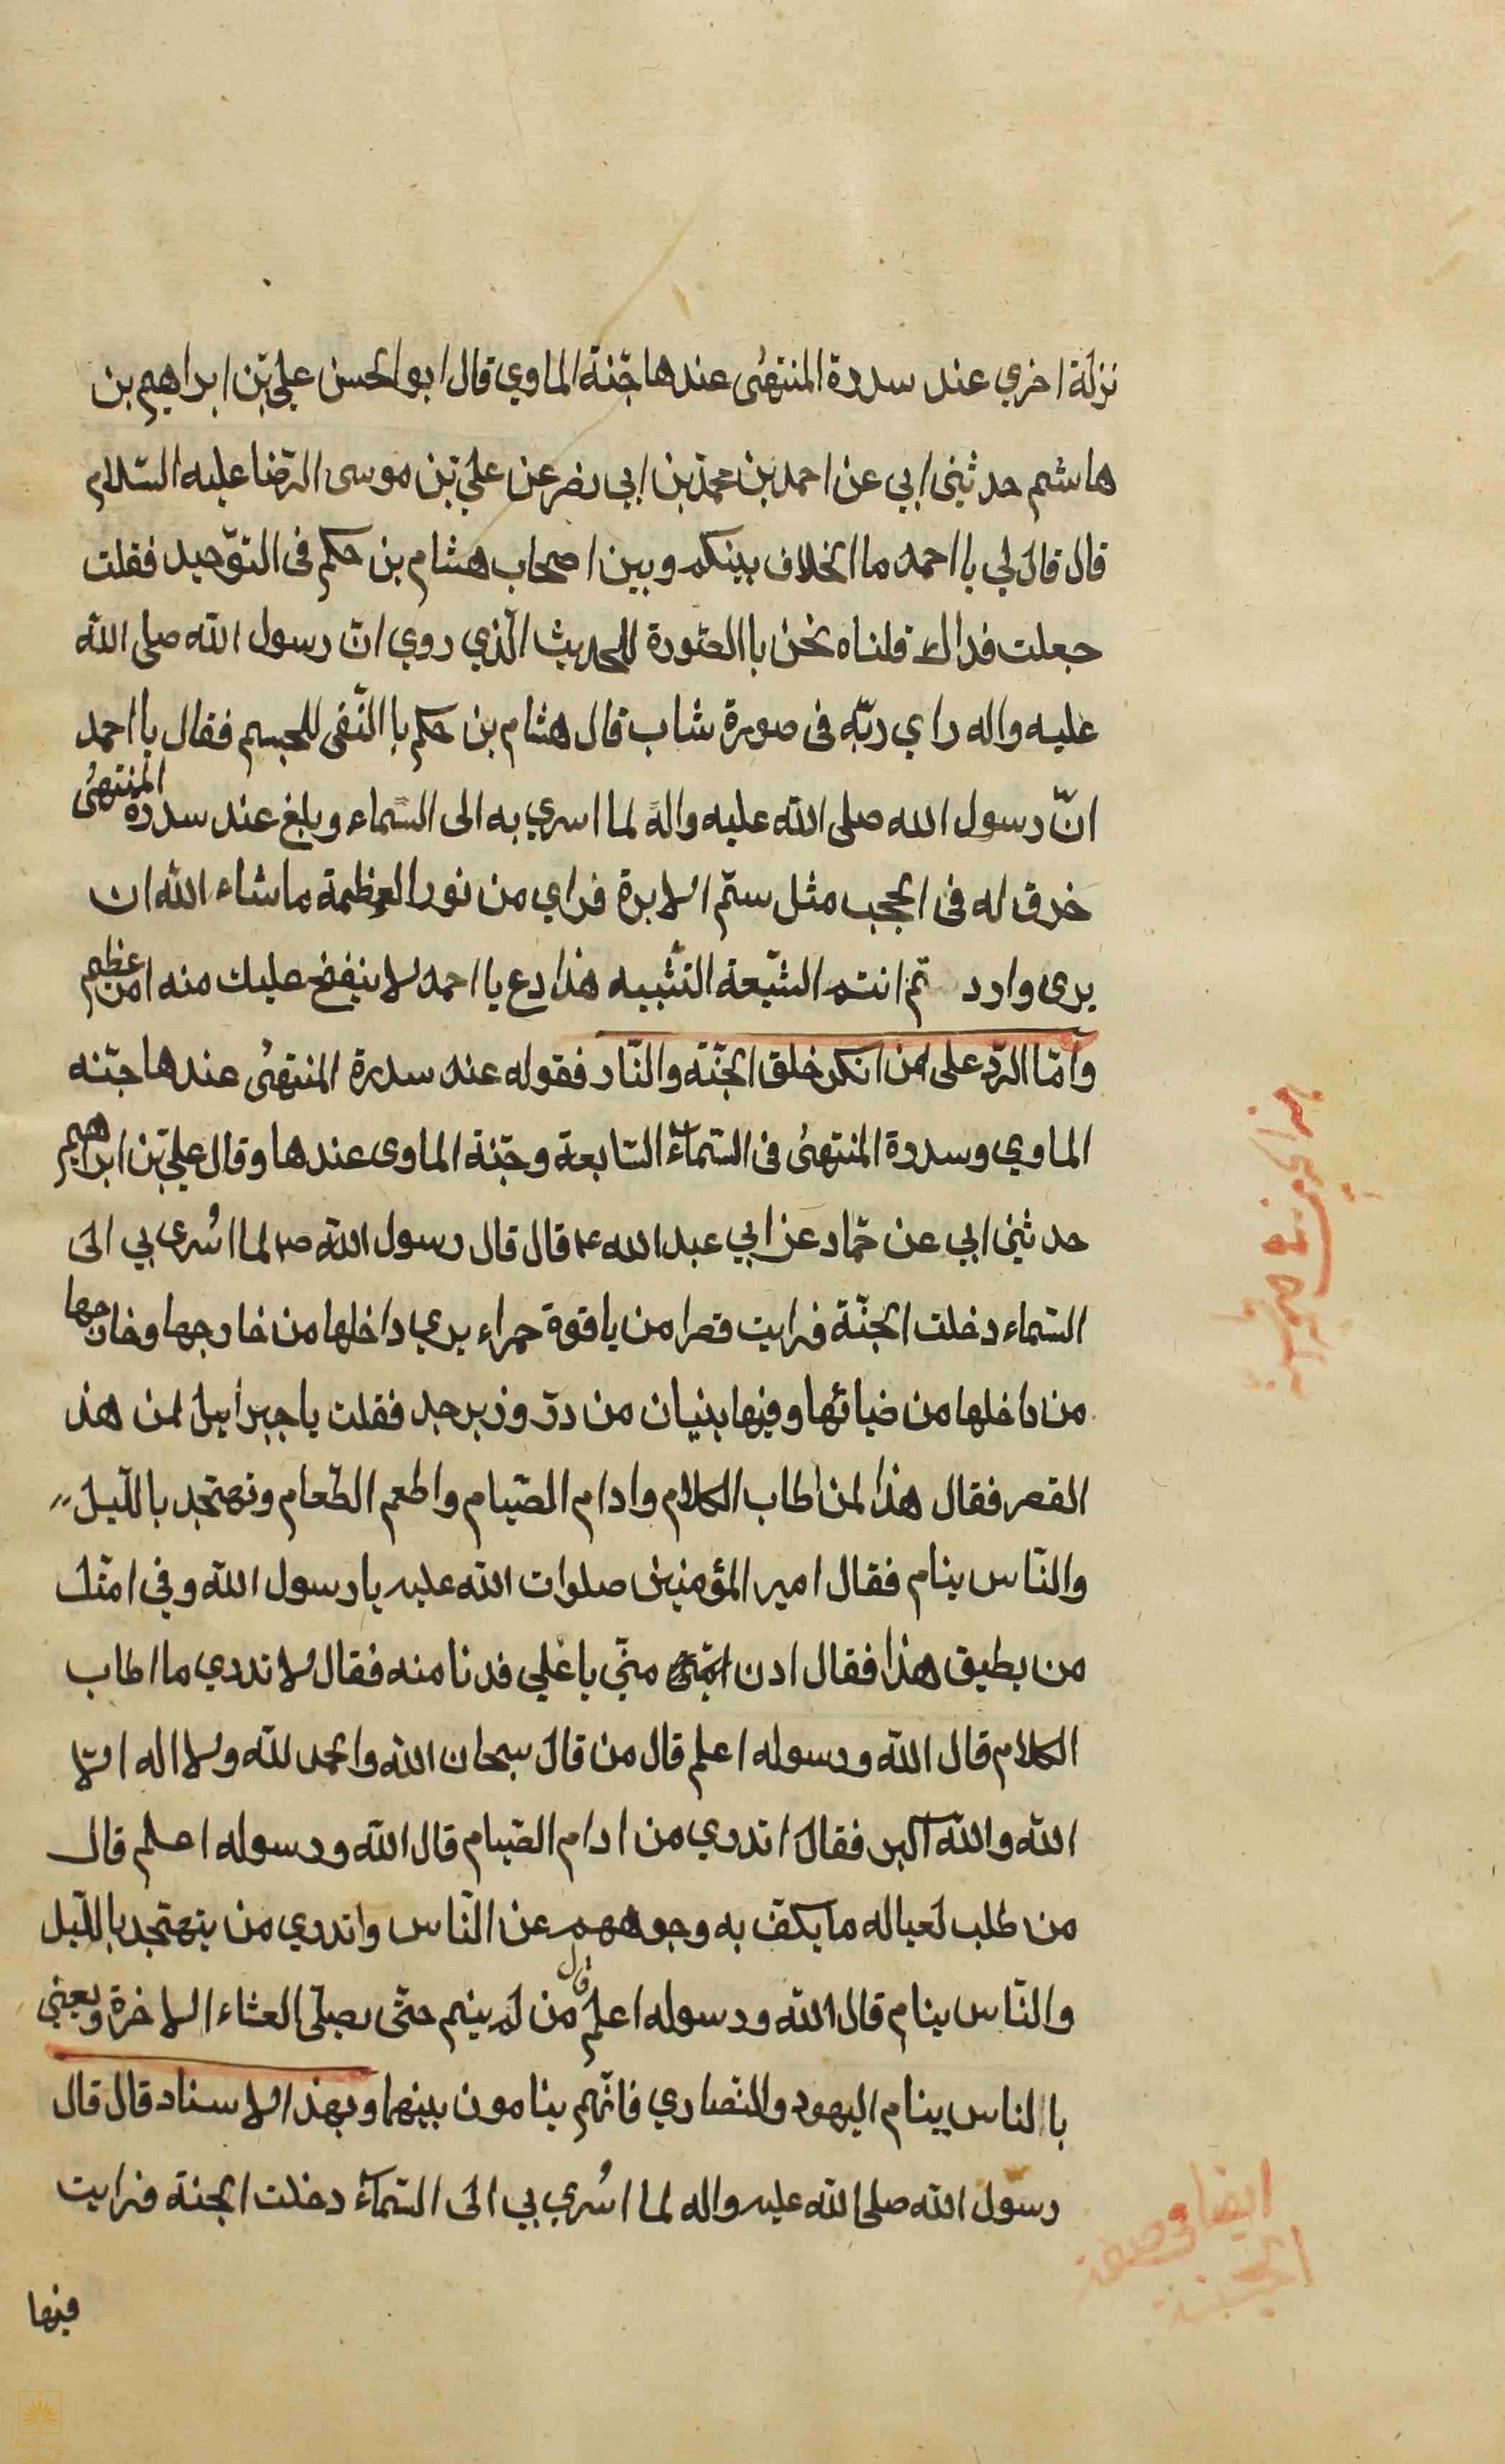 نزلة اخري عند سدرة المنتهى عندها جنة الماوي قال ابو الحسن علي بن ابراهيم بن
هاشم حدثني ابي عن احمد بن محمد بن ابي نصر عن علي بن موسى الرضا عليه السلام
قال قال لي يا احمد ما الخلاف بينكم وبين اصحاب هشام بن حكم في التوحيد فقلت
جعلت فداك قلناه نحن با الصورة للحديث الذي روي ان رسول الله صلى الله
عليه واله راي ربه في صورة شاب قال هشام بن حكم با النفى للجسم فقال يا احمد
ان رسول الله صلى الله عليه واله لما اسري به الى السماء وبلغ عند سدرة المنتهى
خرق له في الحجب مثل سم الابرة فراي من نور العظمة ما شاء الله ان
يرى وارد تم انتم الشيعة التشبيه هذا دع يا احمد لا ينفتح عليك منه امن عظيم
واما الرد على من انكر خلق الجنة والنار فقوله عند سدرة المنتهى عندها جنه
الماوي وسدرة المنتهى في السماء السابعة وجنة الماوى عندها وقال علي بن ابراهيم
حدثني ابي عن حماد عن ابي عبد الله ع قال قال رسول الله ص لما اُسرى بي الى
السماء دخلت الجنة فرايت قصرا من ياقوة حمراء يري داخلها من خارجها وخارجها
من داخلها من ضيائها وفيها بنيان من در وزبرجد فقلت يا جبرائيل لمن هذ
القصر فقال هذا لمن اطاب الكلام وادام الصيام واطعم الطعام وتهجد بالليل
والناس ينام فقال امير المؤمنين صلوات الله عليه يا رسول الله وفي امتك
من يطيق هذا فقال ادن مني يا علي فدنا منه فقال لا تدري ما اطاب
الكلام قال الله ورسوله اعلم قال من قال سبحان الله والحمد لله ولا اله الا
الله والله اكبر فقال اتدري من ادام الصيام قال الله ورسوله اعلم قال
من طلب لعياله ما يكف به وجوههم عن الناس واتدري من يتهجد بالليل
والناس ينام قال الله ورسوله اعلم قال من لم ينم حتى يصلي العشاء الاخرة ويعني
با الناس ينام اليهود والنصاري فانهم ينامون بينهما وبهذا الاسناد قال قال
رسول الله صلى الله عليه واله لما اُسري بي الى السماء دخلت الجنة فرايت
ايضا في صفة
الجنة
فيها